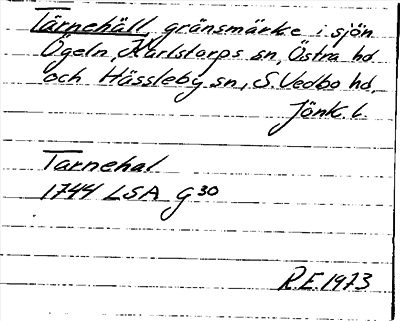 Tärnehäll, gränsmärke i sjön
Ögeln, Karlstorps sn, Östra hd
och Hässleby sn, S. Vedbo hd,
Jönk. l.
Tarnehal
1744 LSA G 30
R.E. 1973